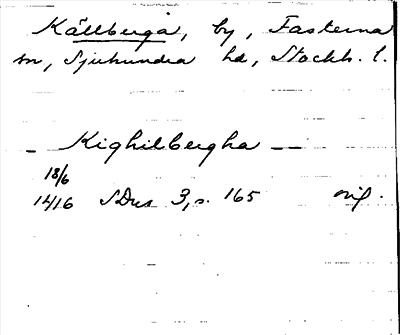 Källberga, by, Fasterna
sn, Sjuhundra hd, Stockh. l.
_ Kighilbergha _ _
18/6
1416 SDns 3, s. 165 orig.